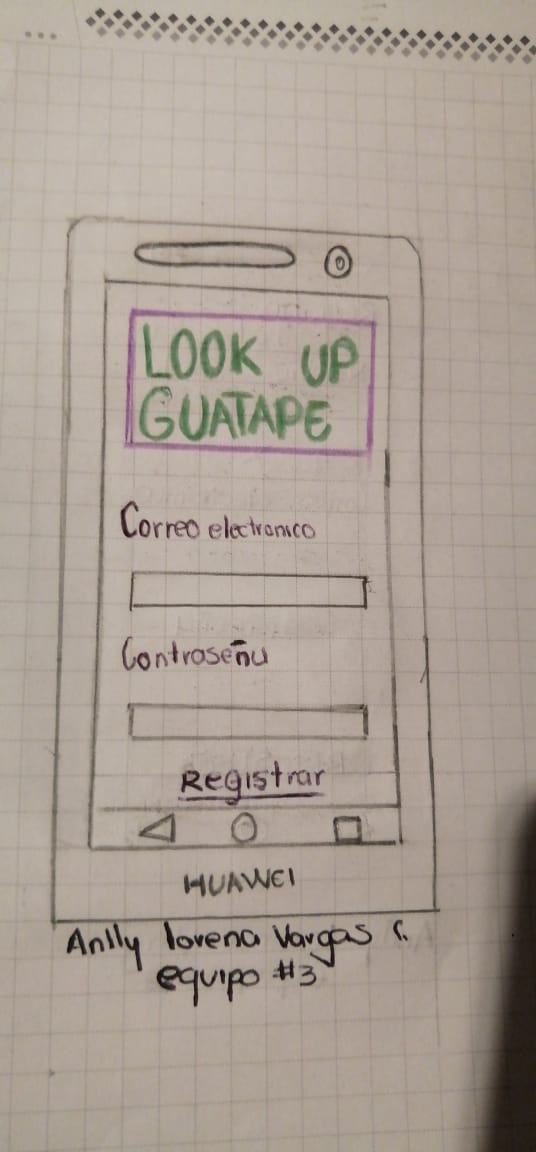 LOOK UP
GUATAPE
Correo electronico
Contraseña
Registrar
HUAWEI
Anlly lorena Vargas C.
equipo #3